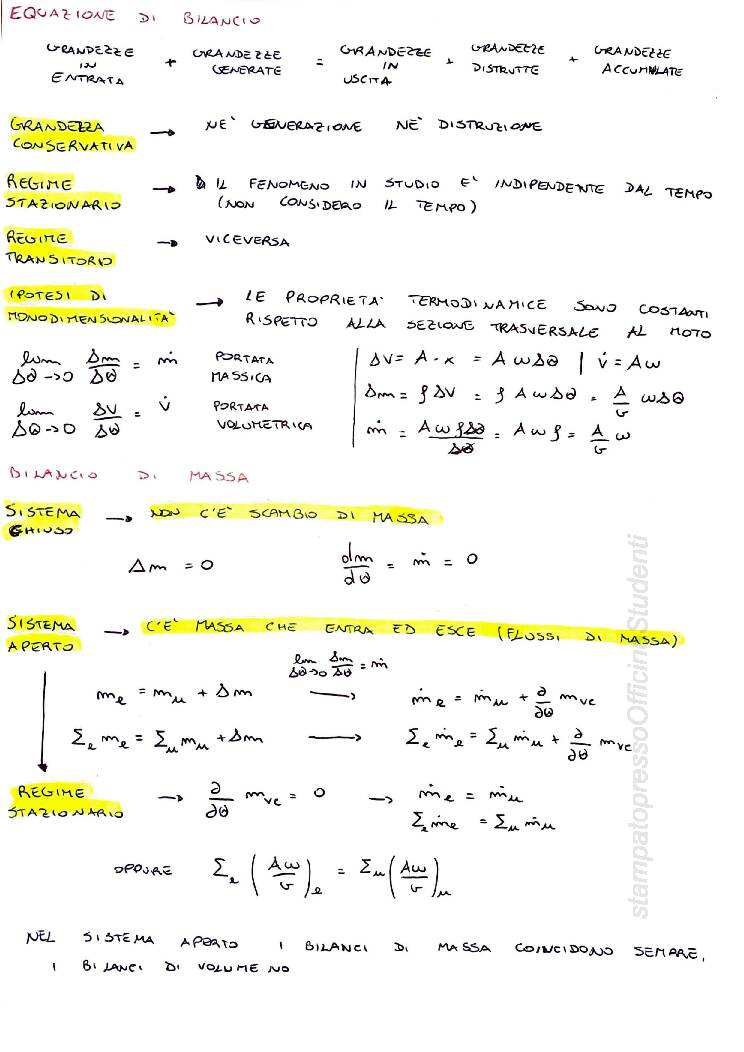 EQUAZIONE DI BILANCIO
GRANDEZZE IN ENTRATA + GRANDEZZE GENERATE = GRANDEZZE IN USCITA + GRANDEZZE DISTRUTTE + GRANDEZZE ACCUMULATE
GRANDEZZA CONSERVATIVA → NE' GENERAZIONE NE' DISTRUZIONE
REGIME STAZIONARIO → IL FENOMENO IN STUDIO E' INDIPENDENTE DAL TEMPO
(NON CONSIDERO IL TEMPO)
REGIME TRANSITORIO → VICEVERSA
IPOTESI DI MONODIMENSIONALITA' → LE PROPRIETA' TERMODINAMICE SONO COSTANTI
RISPETTO ALLA SEZIONE TRASVERSALE AL MOTO
lim Δθ→0 Δm/Δθ = ṁ PORTATA MASSICA
lim Δθ→0 ΔV/Δθ = V̇ PORTATA VOLUMETRICA
ΔV = A · x = A w Δθ | V̇ = A w
Δm = ρ ΔV = ρ A w Δθ = A/v w Δθ
ṁ = A w ρ Δθ/Δθ = A w ρ = A/v w
BILANCIO DI MASSA
SISTEMA CHIUSO → NON C'E' SCAMBIO DI MASSA
Δm = 0 dm/dθ = ṁ = 0
SISTEMA APERTO → C'E' MASSA CHE ENTRA ED ESCE (FLUSSI DI MASSA)
lim Δθ→0 Δm/Δθ = ṁ
me = mu + Δm → ṁe = ṁu + ∂/∂θ mvc
Σe me = Σu mu + Δm → Σe ṁe = Σu ṁu + ∂/∂θ mvc
REGIME STAZIONARIO → ∂/∂θ mvc = 0 → ṁe = ṁu
Σe ṁe = Σu ṁu
OPPURE Σe (Aw/v)e = Σu (Aw/v)u
NEL SISTEMA APERTO I BILANCI DI MASSA COINCIDONO SEMPRE,
I BILANCI DI VOLUME NO
stampatopressoOfficinaStudenti